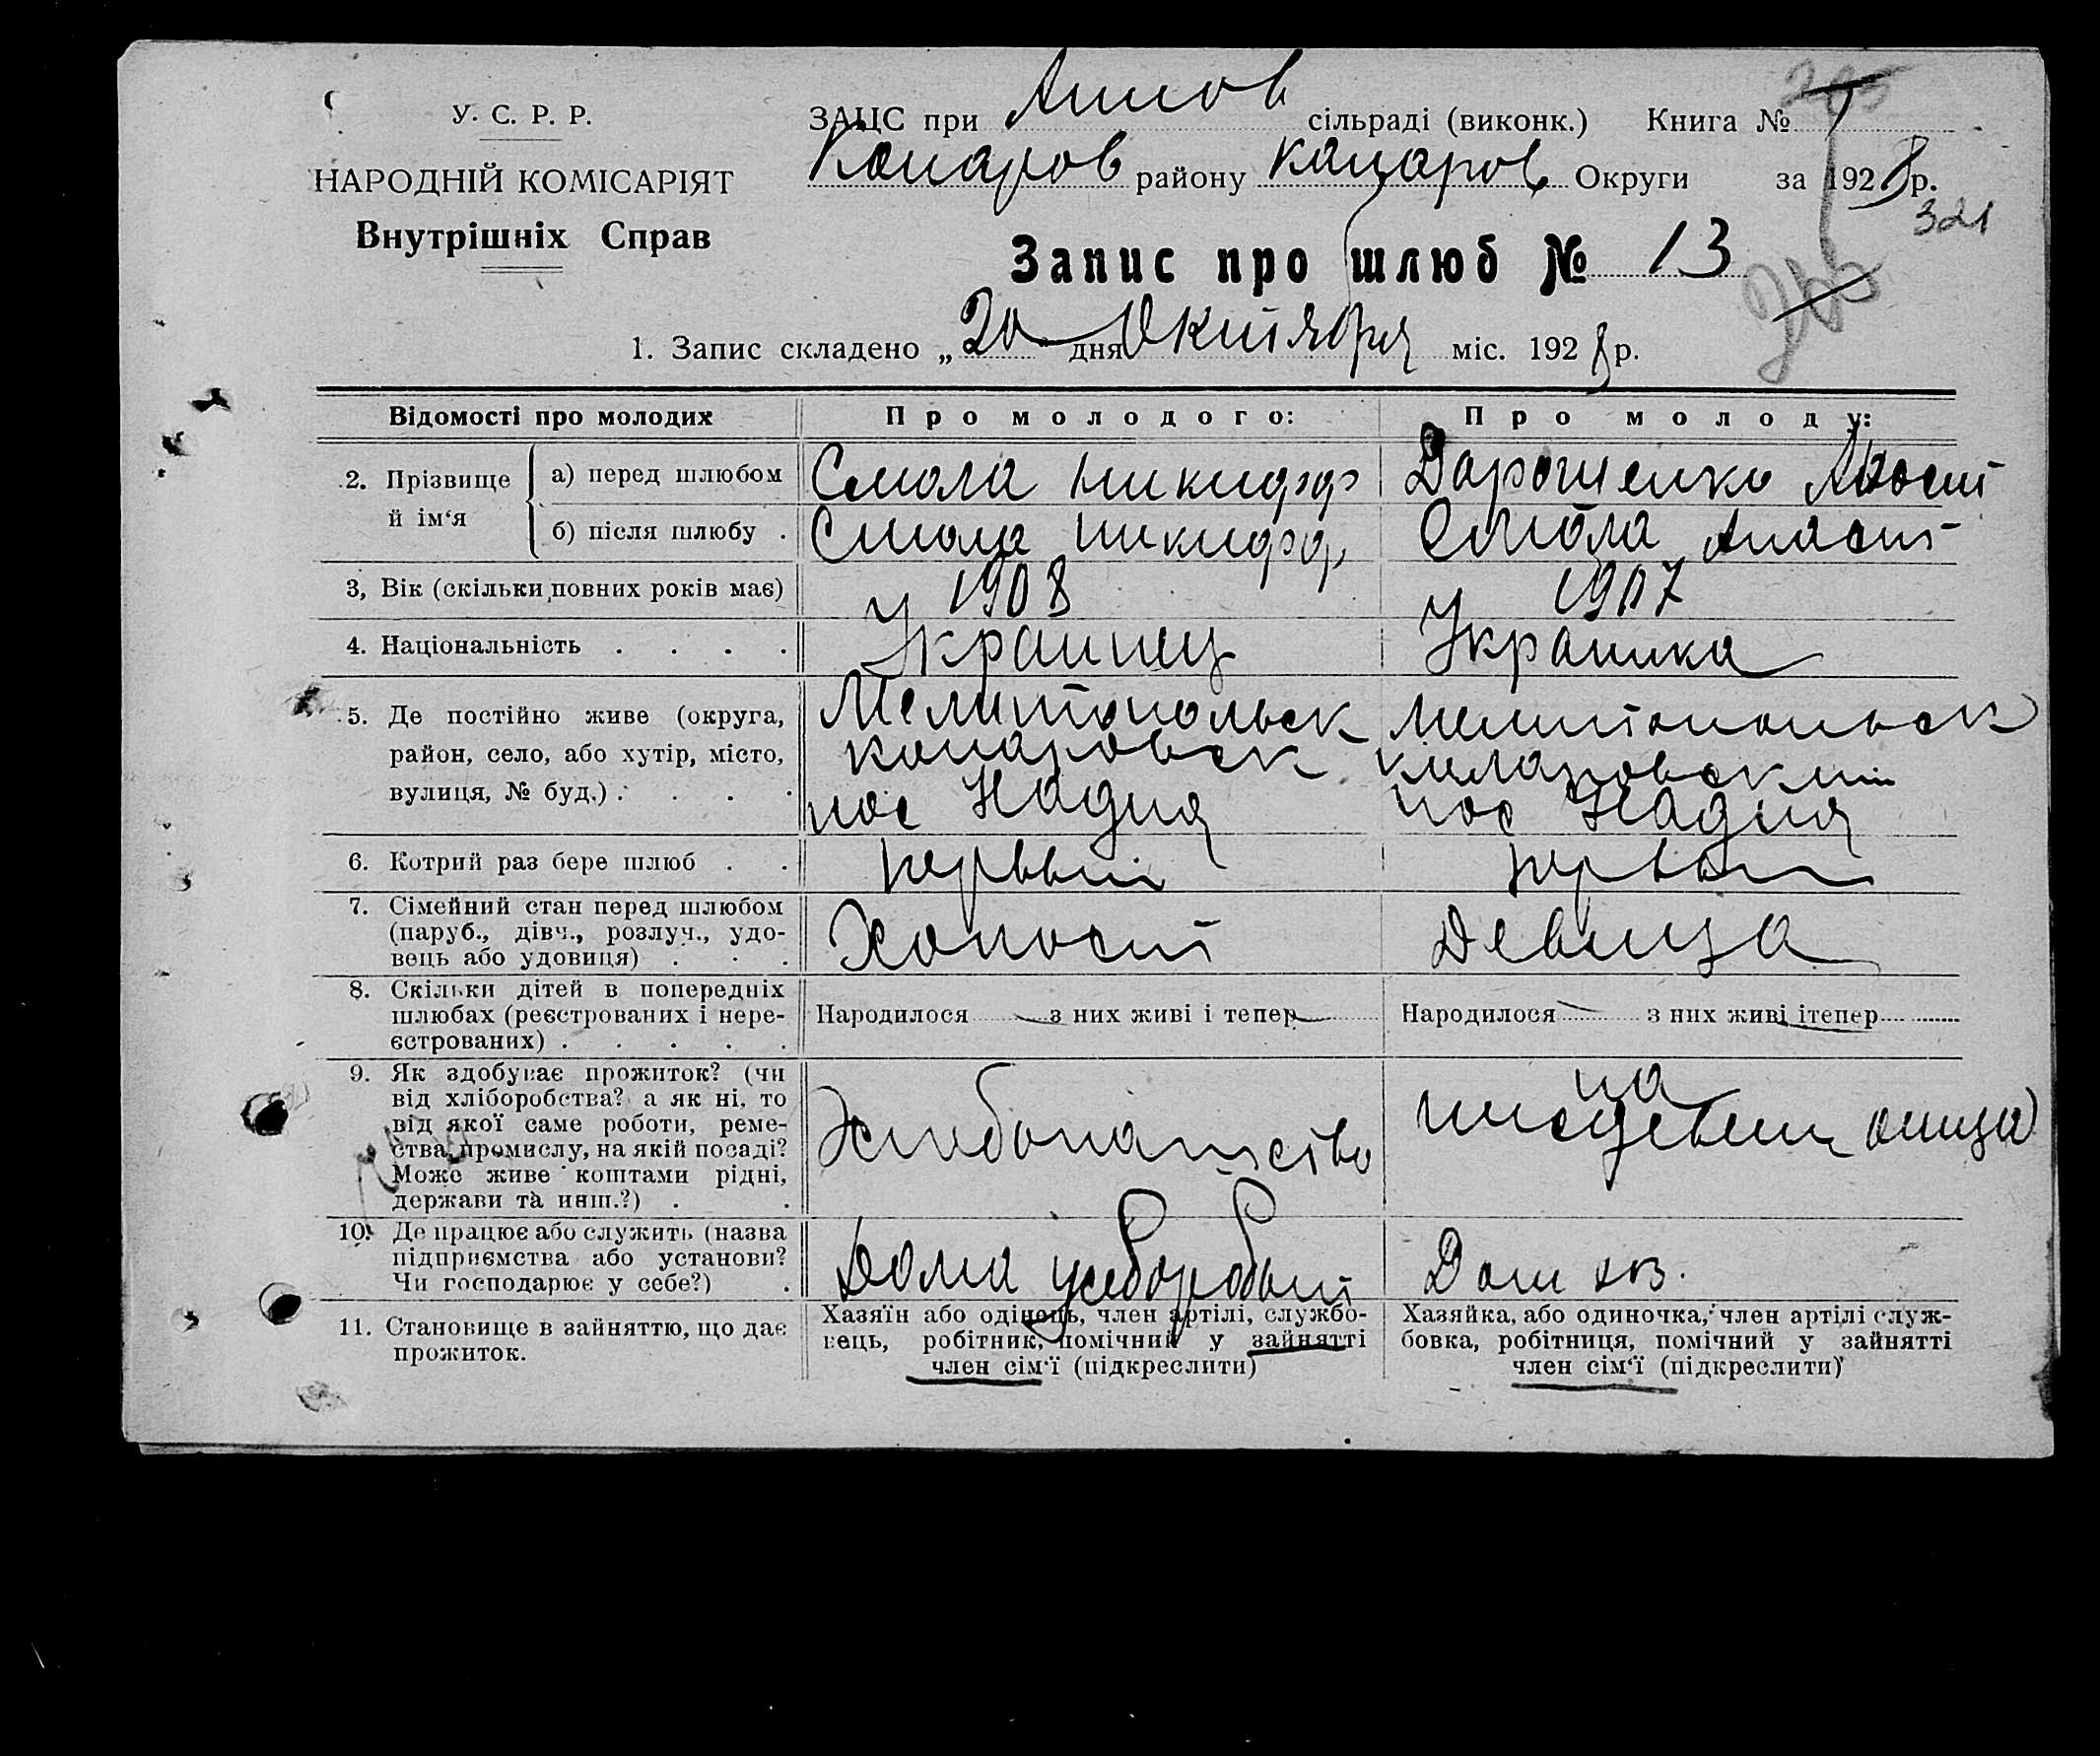 У. С. Р. Р.
НАРОДНІЙ КОМІСАРІЯТ
Внутрішніх Справ
ЗАЦС при сільраді (виконк.) Книга №
Комаров району Комаров Округи за 1928 р.
321
Запис про шлюб № 13
1. Запис складено „20" дня Октября міс. 1928 р.
Відомості про молодих Про молодого: Про молоду:
2. Прізвище й ім‘я
а) перед шлюбом Смола Никифор Дорошенко
б) після шлюбу . Смола Никифор Смола Анаст
3, Вік (скільки повних років має) 1908 1907
4. Національність . . . . Украинец Украинка
5. Де постійно живе (округа, район, село, або хутір, місто, вулиця, № буд.) . . . .
Мелитопольск Мелитопольск
комаровск комаровский
пос Надия пос Надия
6. Котрий раз бере шлюб . . первый первый
7. Сімейний стан перед шлюбом (паруб., дівч., розлуч., удовець або удовиця) . . .
Холост Девица
8. Скільки дітей в попередніх шлюбах (реєстрованих і нереєстрованих) . . . . .
Народилося з них живі і тепер Народилося з них живі ітепер
9. Як здобуває прожиток? (чи від хліборобства? а як ні, то від якої саме роботи, ремества, промислу, на якій посаді? Може живе коштами рідні, держави та инш.?) . .
Хлебопашество на
10. Де працює або служить (назва підприємства або установи? Чи господарює у себе?) .
Дома Дом хоз.
11. Становище в зайняттю, що дає прожиток.
Хазяїн або одінець, член артілі, службовець, робітник, помічний у зайнятті член сім‘ї (підкреслити)
Хазяйка, або одиночка, член артілі службовка, робітниця, помічний у зайнятті член сім‘ї (підкреслити)